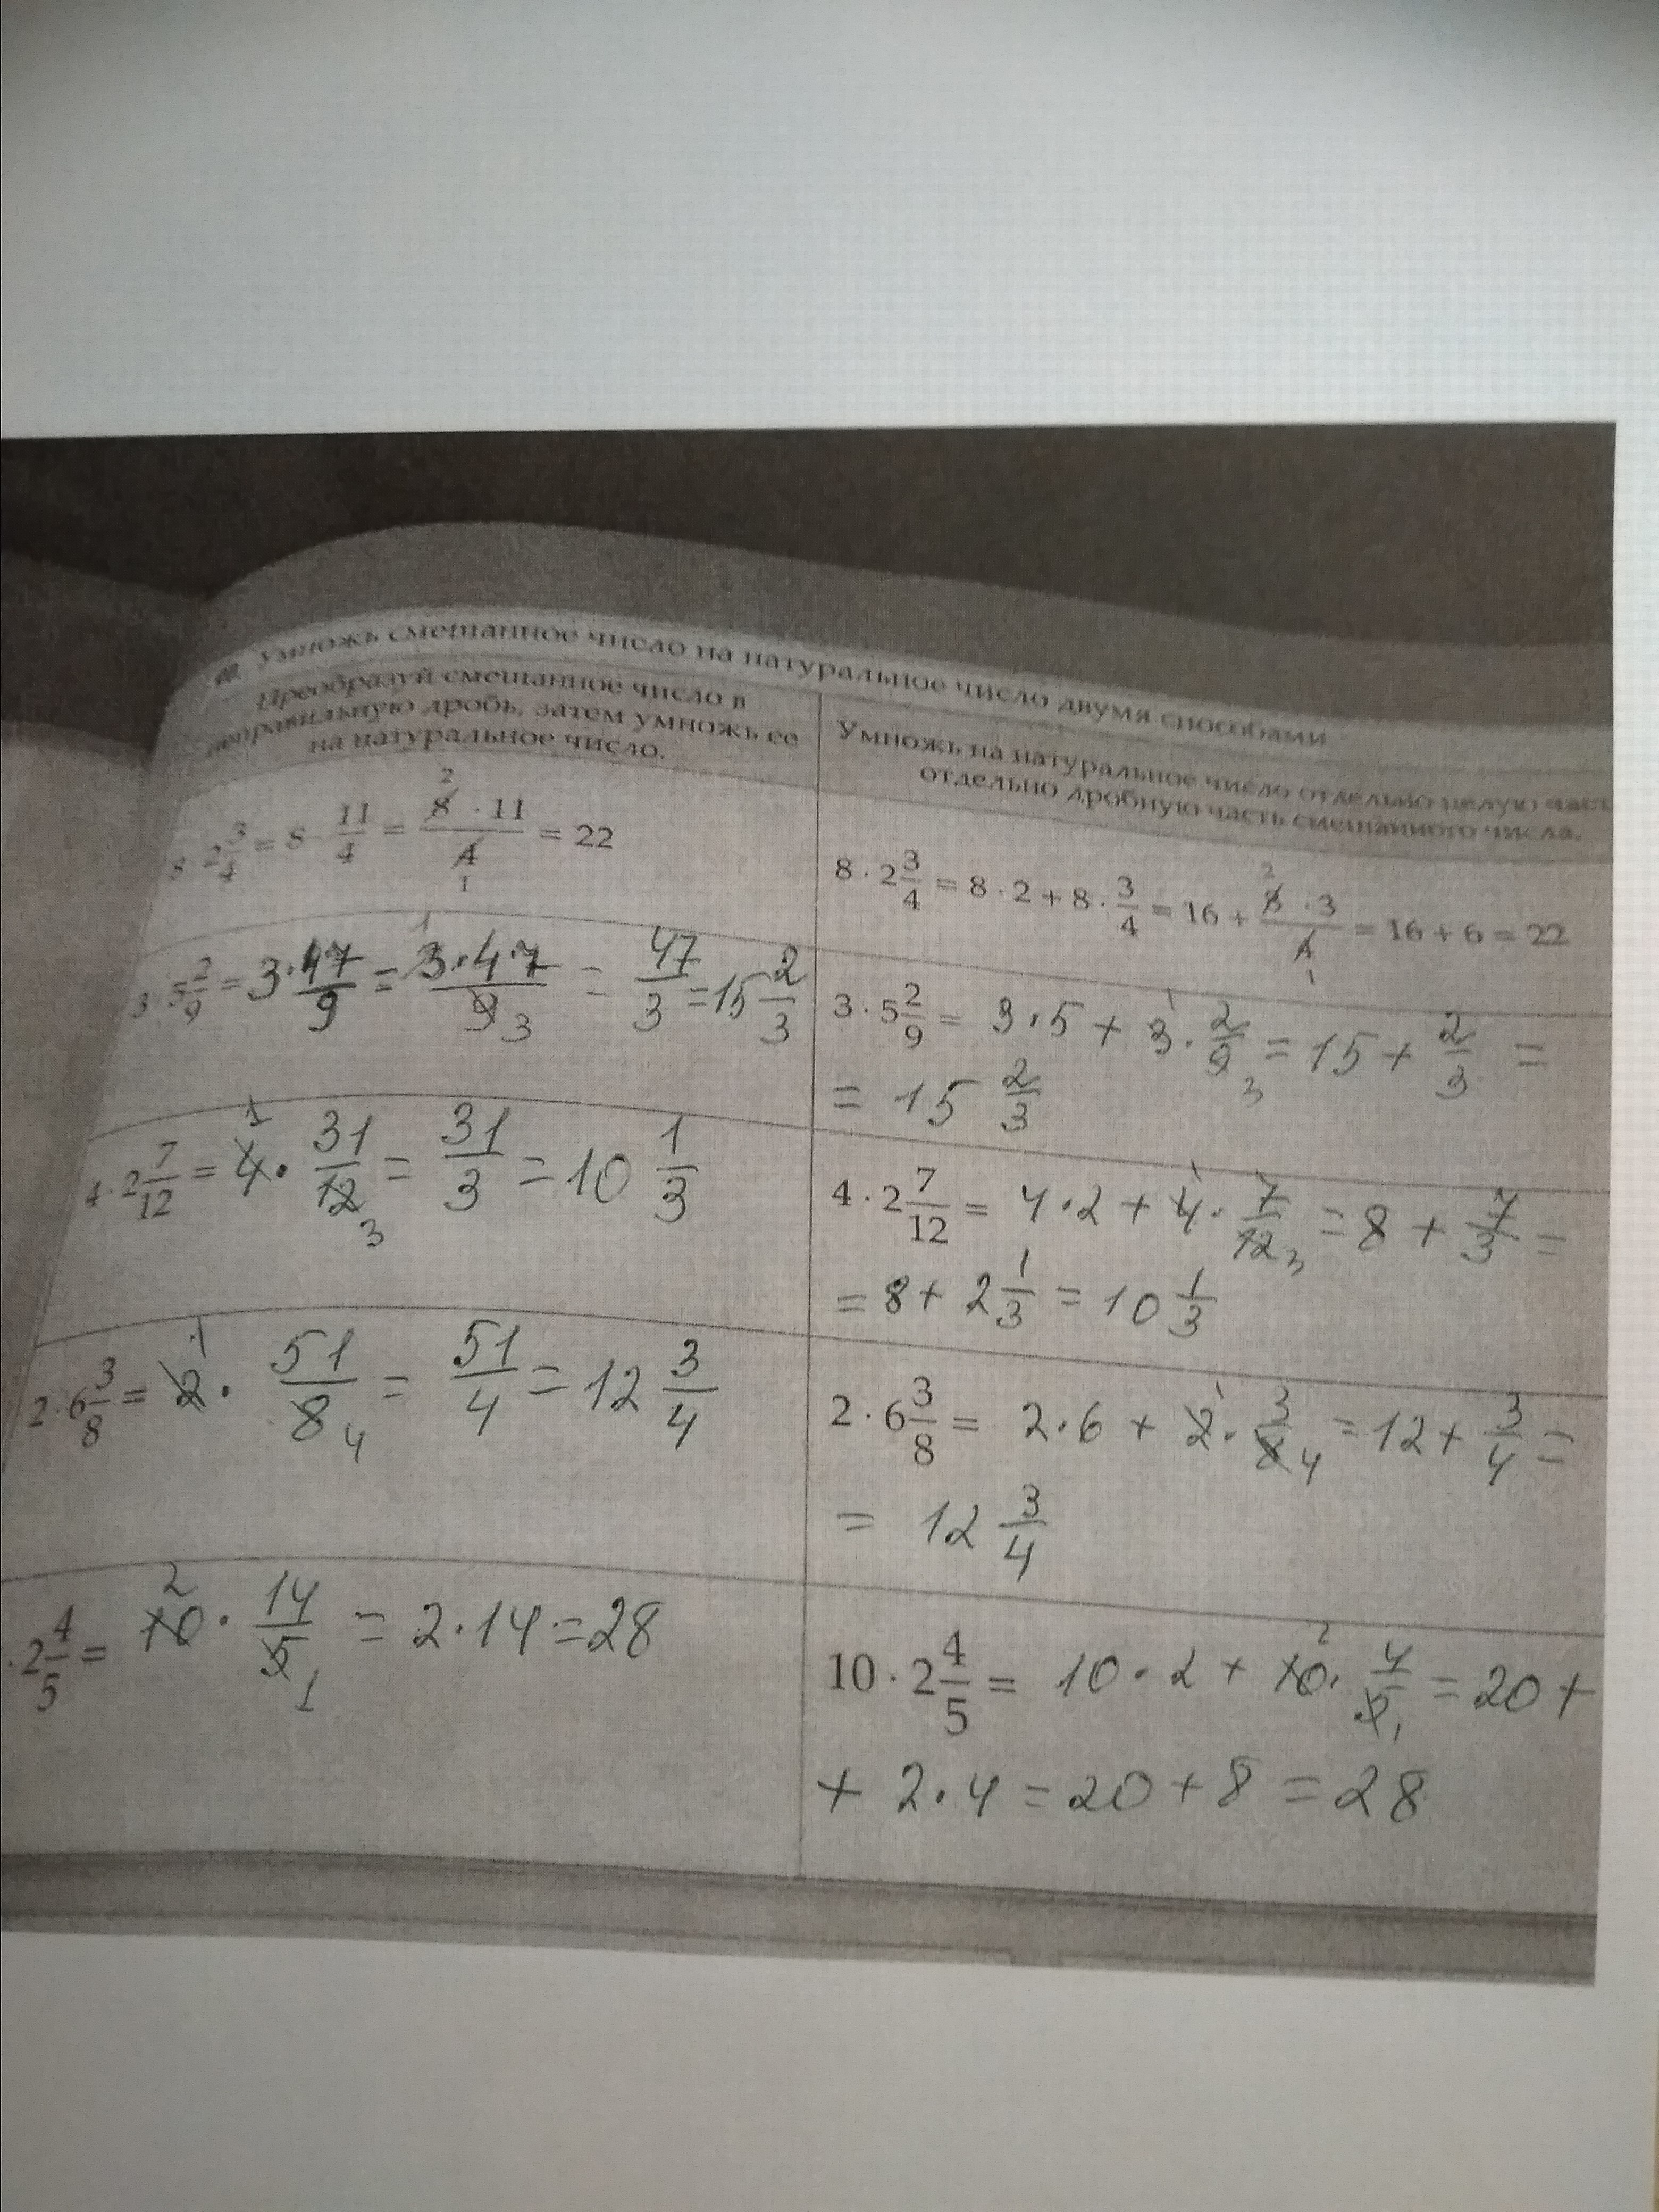 Умножь смешанное число на натуральное число двумя способами
Преобразуй смешанное число в
неправильную дробь, затем умножь ее
на натуральное число.
Умножь на натуральное число отдельно целую част
отдельно дробную часть смешанного числа.
8 · 2 3/4 = 8 · 11/4 = 8² · 11 / 4₁ = 22
8 · 2 3/4 = 8 · 2 + 8 · 3/4 = 16 + 8² · 3 / 4₁ = 16 + 6 = 22
3 · 5 2/9 = 3 · 47/9 = 3¹ · 47 / 9₃ = 47/3 = 15 2/3
3 · 5 2/9 = 3 · 5 + 3¹ · 2/9₃ = 15 + 2/3 =
= 15 2/3
4 · 2 7/12 = 4¹ · 31/12₃ = 31/3 = 10 1/3
4 · 2 7/12 = 4 · 2 + 4¹ · 7/12₃ = 8 + 7/3 =
= 8 + 2 1/3 = 10 1/3
2 · 6 3/8 = 2¹ · 51/8₄ = 51/4 = 12 3/4
2 · 6 3/8 = 2 · 6 + 2¹ · 3/8₄ = 12 + 3/4 =
= 12 3/4
· 2 4/5 = 10² · 14/5₁ = 2 · 14 = 28
10 · 2 4/5 = 10 · 2 + 10² · 4/5₁ = 20 +
+ 2 · 4 = 20 + 8 = 28